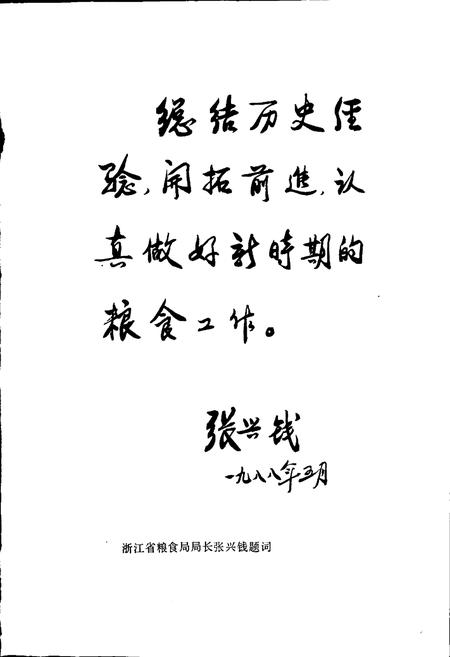 總结历史经
验，開拓前進，认
真做好新時期的
粮食工作。
张兴钱
一九八八年五月
浙江省粮食局局长张兴钱题词